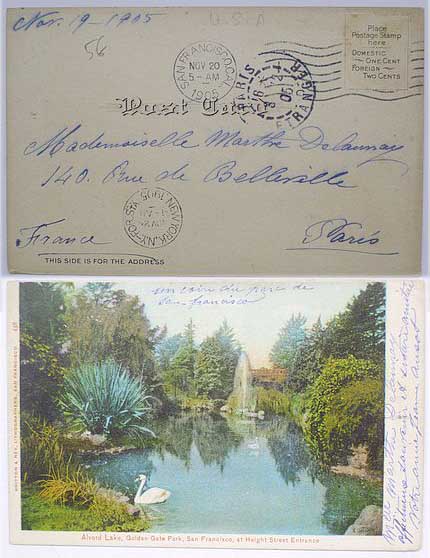 Nov. 19 - 1905
U.S.A
56
SAN FRANCISCO, CAL.
NOV 20
5 - AM
1905
PARIS
ETRANGER
Place
Postage Stamp
here
DOMESTIC
ONE CENT
FOREIGN
TWO CENTS
Post Card
Mademoiselle Marthe Delaunay
140. Rue de Belleville
NEW YORK, N.Y.
1905
France
Paris
THIS SIDE IS FOR THE ADDRESS
un coin du parc de
San-francisco
BRITTON & REY, LITHOGRAPHERS, SAN FRANCISCO
Mlle Marthe Delaunay
souvenir et
Alvord Lake, Golden Gate Park, San Francisco, at Haight Street Entrance